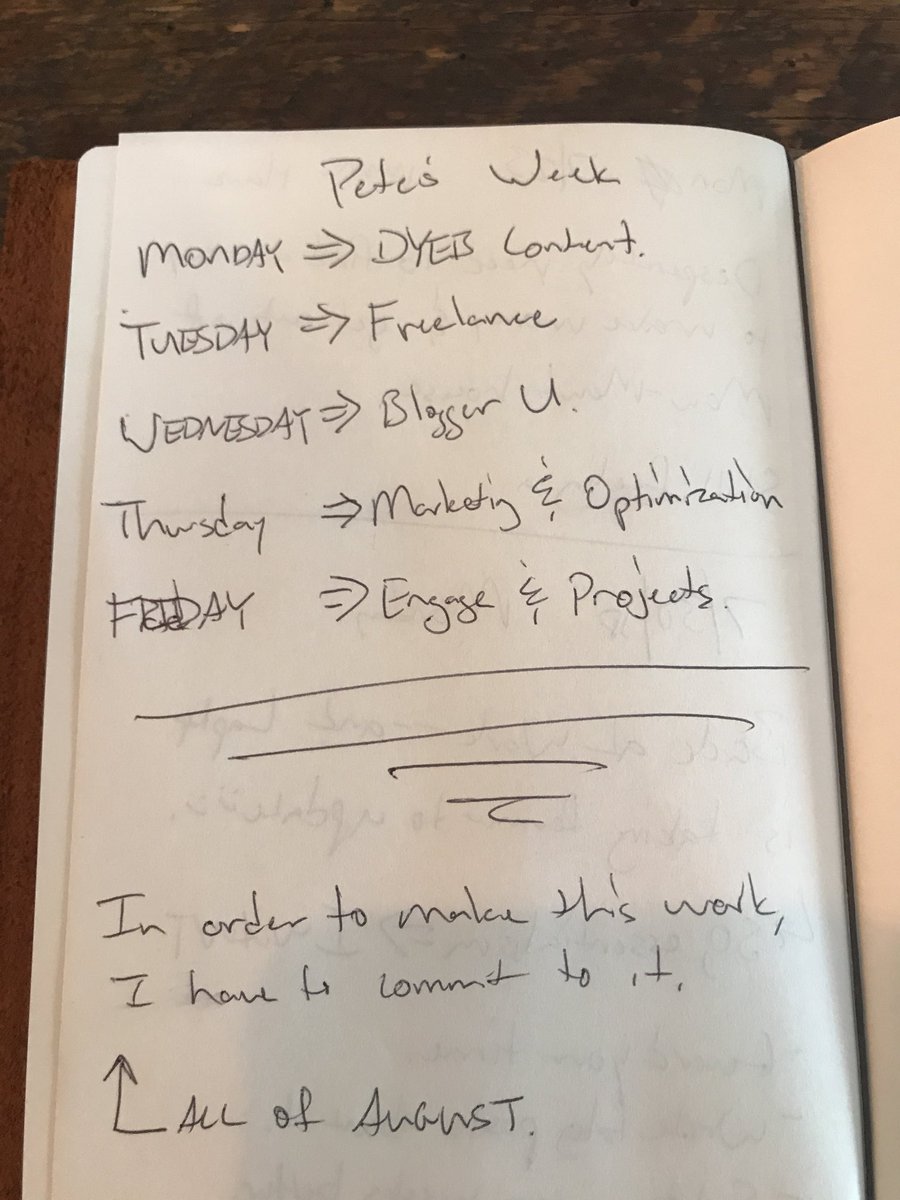 Pete's Week
MONDAY ⇒ DYEB Content.
TUESDAY ⇒ Freelance
WEDNESDAY ⇒ Blogger U.
Thursday ⇒ Marketing & Optimization
FRIDAY ⇒ Engage & Projects.
In order to make this work,
I have to commit to it.
ALL of AUGUST.